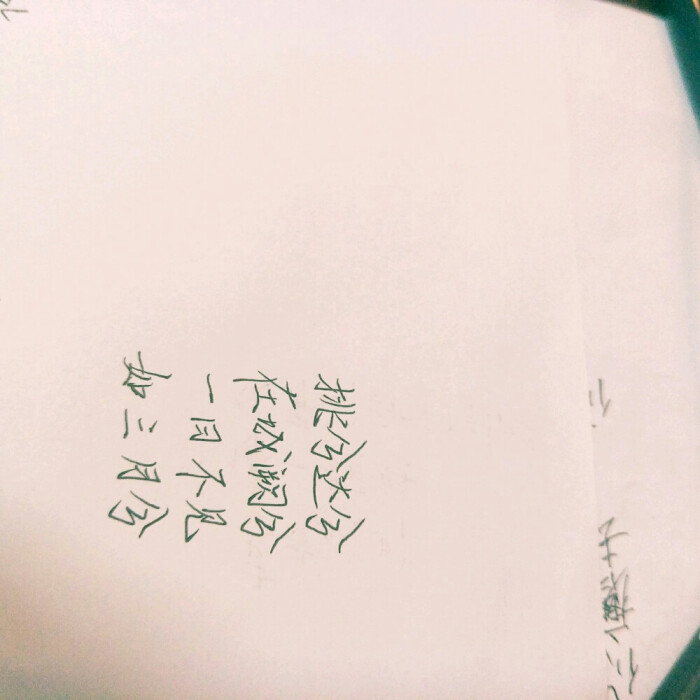 挑兮达兮
在城阙兮
一日不见
如三月兮